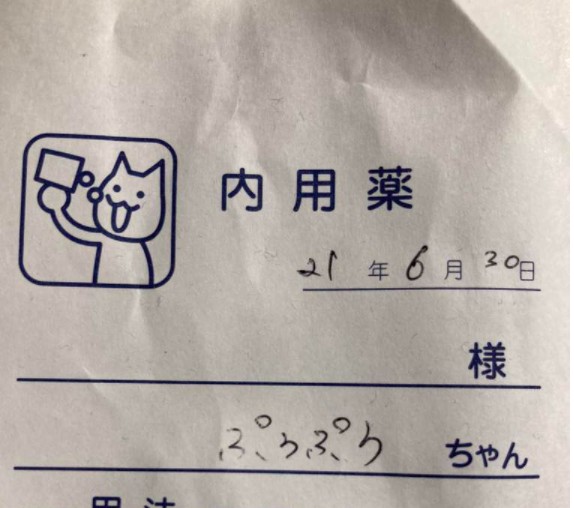 内用薬
21年6月30日
様
ぷうぷう ちゃん
用法